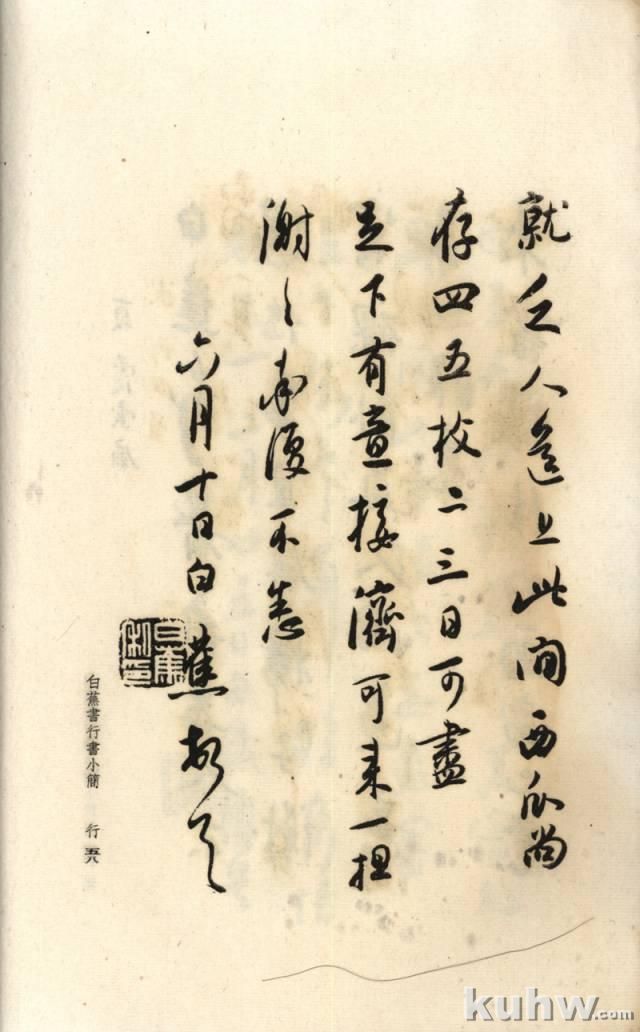 就乏人送上此间西瓜尚
存四五枚二三日可盡
足下有意接濟可来一担
謝〻奉復不悉
六月十日白蕉頓首
白蕉書行書小簡 行 五八
kuhw.com